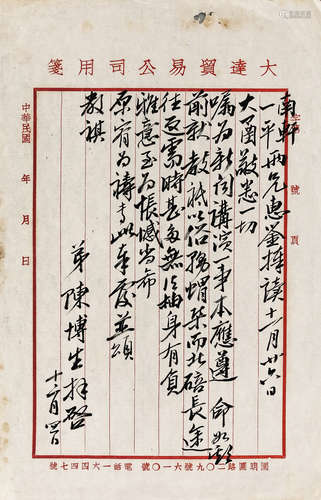 大達貿易公司用箋
號 頁
南軒
一平兩兄惠鑒捧讀十一月廿六日
大函敬悉一切
囑為新聞講演一事本應遵 命如期
前就教祗以俗務蝟集而北碚長途
往返需時甚多無以抽身有負
雅意至為悵憾尚希
原宥為禱專此奉復並頌
教祺
弟陳博生拜啓
十二月四日
中華民國 年 月 日
圓明園路二〇九號六一〇號 電話一六四四七號